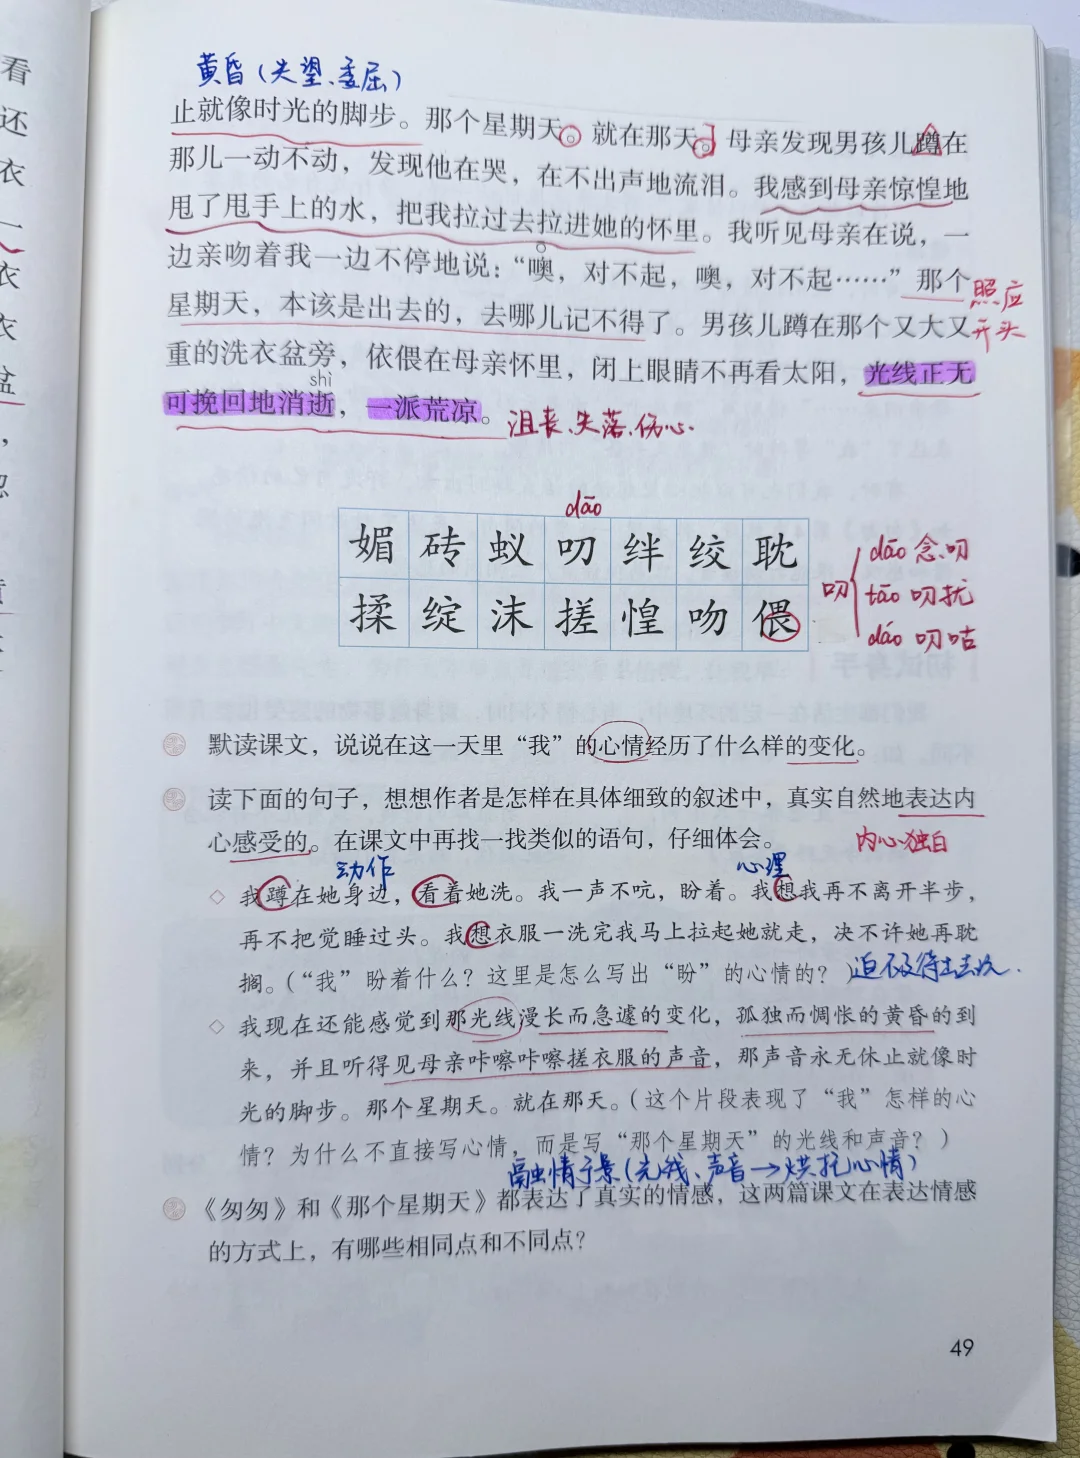 看
还
衣
一
衣
衣
盆
，
黄昏（失望、委屈）
止就像时光的脚步。那个星期天。就在那天。母亲发现男孩儿蹲在
那儿一动不动，发现他在哭，在不出声地流泪。我感到母亲惊惶地
甩了甩手上的水，把我拉过去拉进她的怀里。我听见母亲在说，一
边亲吻着我一边不停地说：“噢，对不起，噢，对不起……”那个
照应
星期天，本该是出去的，去哪儿记不得了。男孩儿蹲在那个又大又
开头
重的洗衣盆旁，依偎在母亲怀里，闭上眼睛不再看太阳，光线正无
shì
可挽回地消逝，一派荒凉。
沮丧、失落、伤心.
dāo
媚 砖 蚁 叨 绊 绞 耽
揉 绽 沫 搓 惶 吻 偎
叨
dāo 念叨
tāo 叨扰
dáo 叨咕
默读课文，说说在这一天里“我”的心情经历了什么样的变化。
读下面的句子，想想作者是怎样在具体细致的叙述中，真实自然地表达内
心感受的。在课文中再找一找类似的语句，仔细体会。
内心独白
动作 心理
◇ 我蹲在她身边，看着她洗。我一声不吭，盼着。我想我再不离开半步，
再不把觉睡过头。我想衣服一洗完我马上拉起她就走，决不许她再耽
搁。（“我”盼着什么？这里是怎么写出“盼”的心情的？）
迫不及待出去玩.
◇ 我现在还能感觉到那光线漫长而急遽的变化，孤独而惆怅的黄昏的到
来，并且听得见母亲咔嚓咔嚓搓衣服的声音，那声音永无休止就像时
光的脚步。那个星期天。就在那天。（这个片段表现了“我”怎样的心
情？为什么不直接写心情，而是写“那个星期天”的光线和声音？）
融情于景（光线、声音→烘托心情）
《匆匆》和《那个星期天》都表达了真实的情感，这两篇课文在表达情感
的方式上，有哪些相同点和不同点？
49